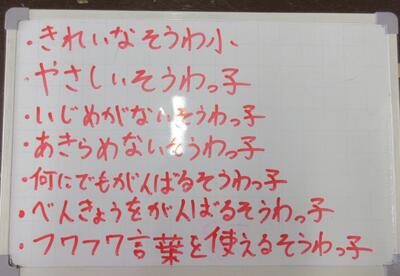 ・きれいなそうわ小
・やさしいそうわっ子
・いじめがないそうわっ子
・あきらめないそうわっ子
・何にでもがんばるそうわっ子
・べんきょうをがんばるそうわっ子
・フワフワ言葉を使えるそうわっ子